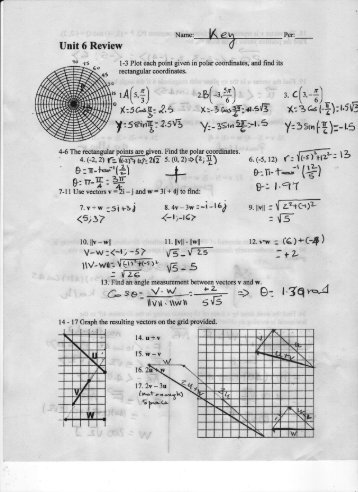 Name: Key Per:
Unit 6 Review
1-3 Plot each point given in polar coordinates, and find its
rectangular coordinates.
90 75 60 45
1. A(5, π/3) 2. B(-3, 5π/6) 3. C(3, -π/6)
X = 5 Cos π/3 = 2.5 X = -3 Cos 5π/6 = 1.5√3 X = 3 Cos(-π/6) = 1.5√3
Y = 5 sin π/3 = 2.5√3 Y = -3 sin 5π/6 = -1.5 Y = 3 sin(-π/6) = -1.5
4-6 The rectangular points are given. Find the polar coordinates.
4. (-2, 2) r = √(-2)²+(2)² = 2√2 5. (0, 2) ⇒ (2, π/2) 6. (-5, 12) r = √(-5)²+12² = 13
θ = π - tan⁻¹(2/2) θ = π - tan⁻¹(12/5)
θ = π - π/4 = 3π/4 θ = 1.97
7-11 Use vectors v = 2i – j and w = 3i + 4j to find:
7. v + w = 5i + 3j 8. 4v – 3w = -i - 16j 9. ||v|| = √2²+(-1)²
<5, 3> <-1, -16> = √5
10. ||v – w|| 11. ||v|| - ||w|| 12. v•w = (6) + (-4)
V-W = <-1, -5> √5 - √25 = +2
||V-W|| = √(-1)²+(-5)² √5 - 5
= √26
13. Find an angle measurement between vectors v and w.
Cos θ = V·W / ||V||·||W|| = +2 / 5√5 ⇒ θ = 1.39 rad
14 - 17 Graph the resulting vectors on the grid provided.
14. u + v
15. w – v
16. 2u + w
17. 2v – 3u
(not enough
space)